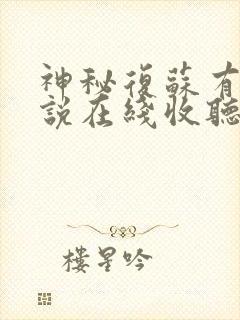 神秘復蘇有
說在綫收聽
樓星吟